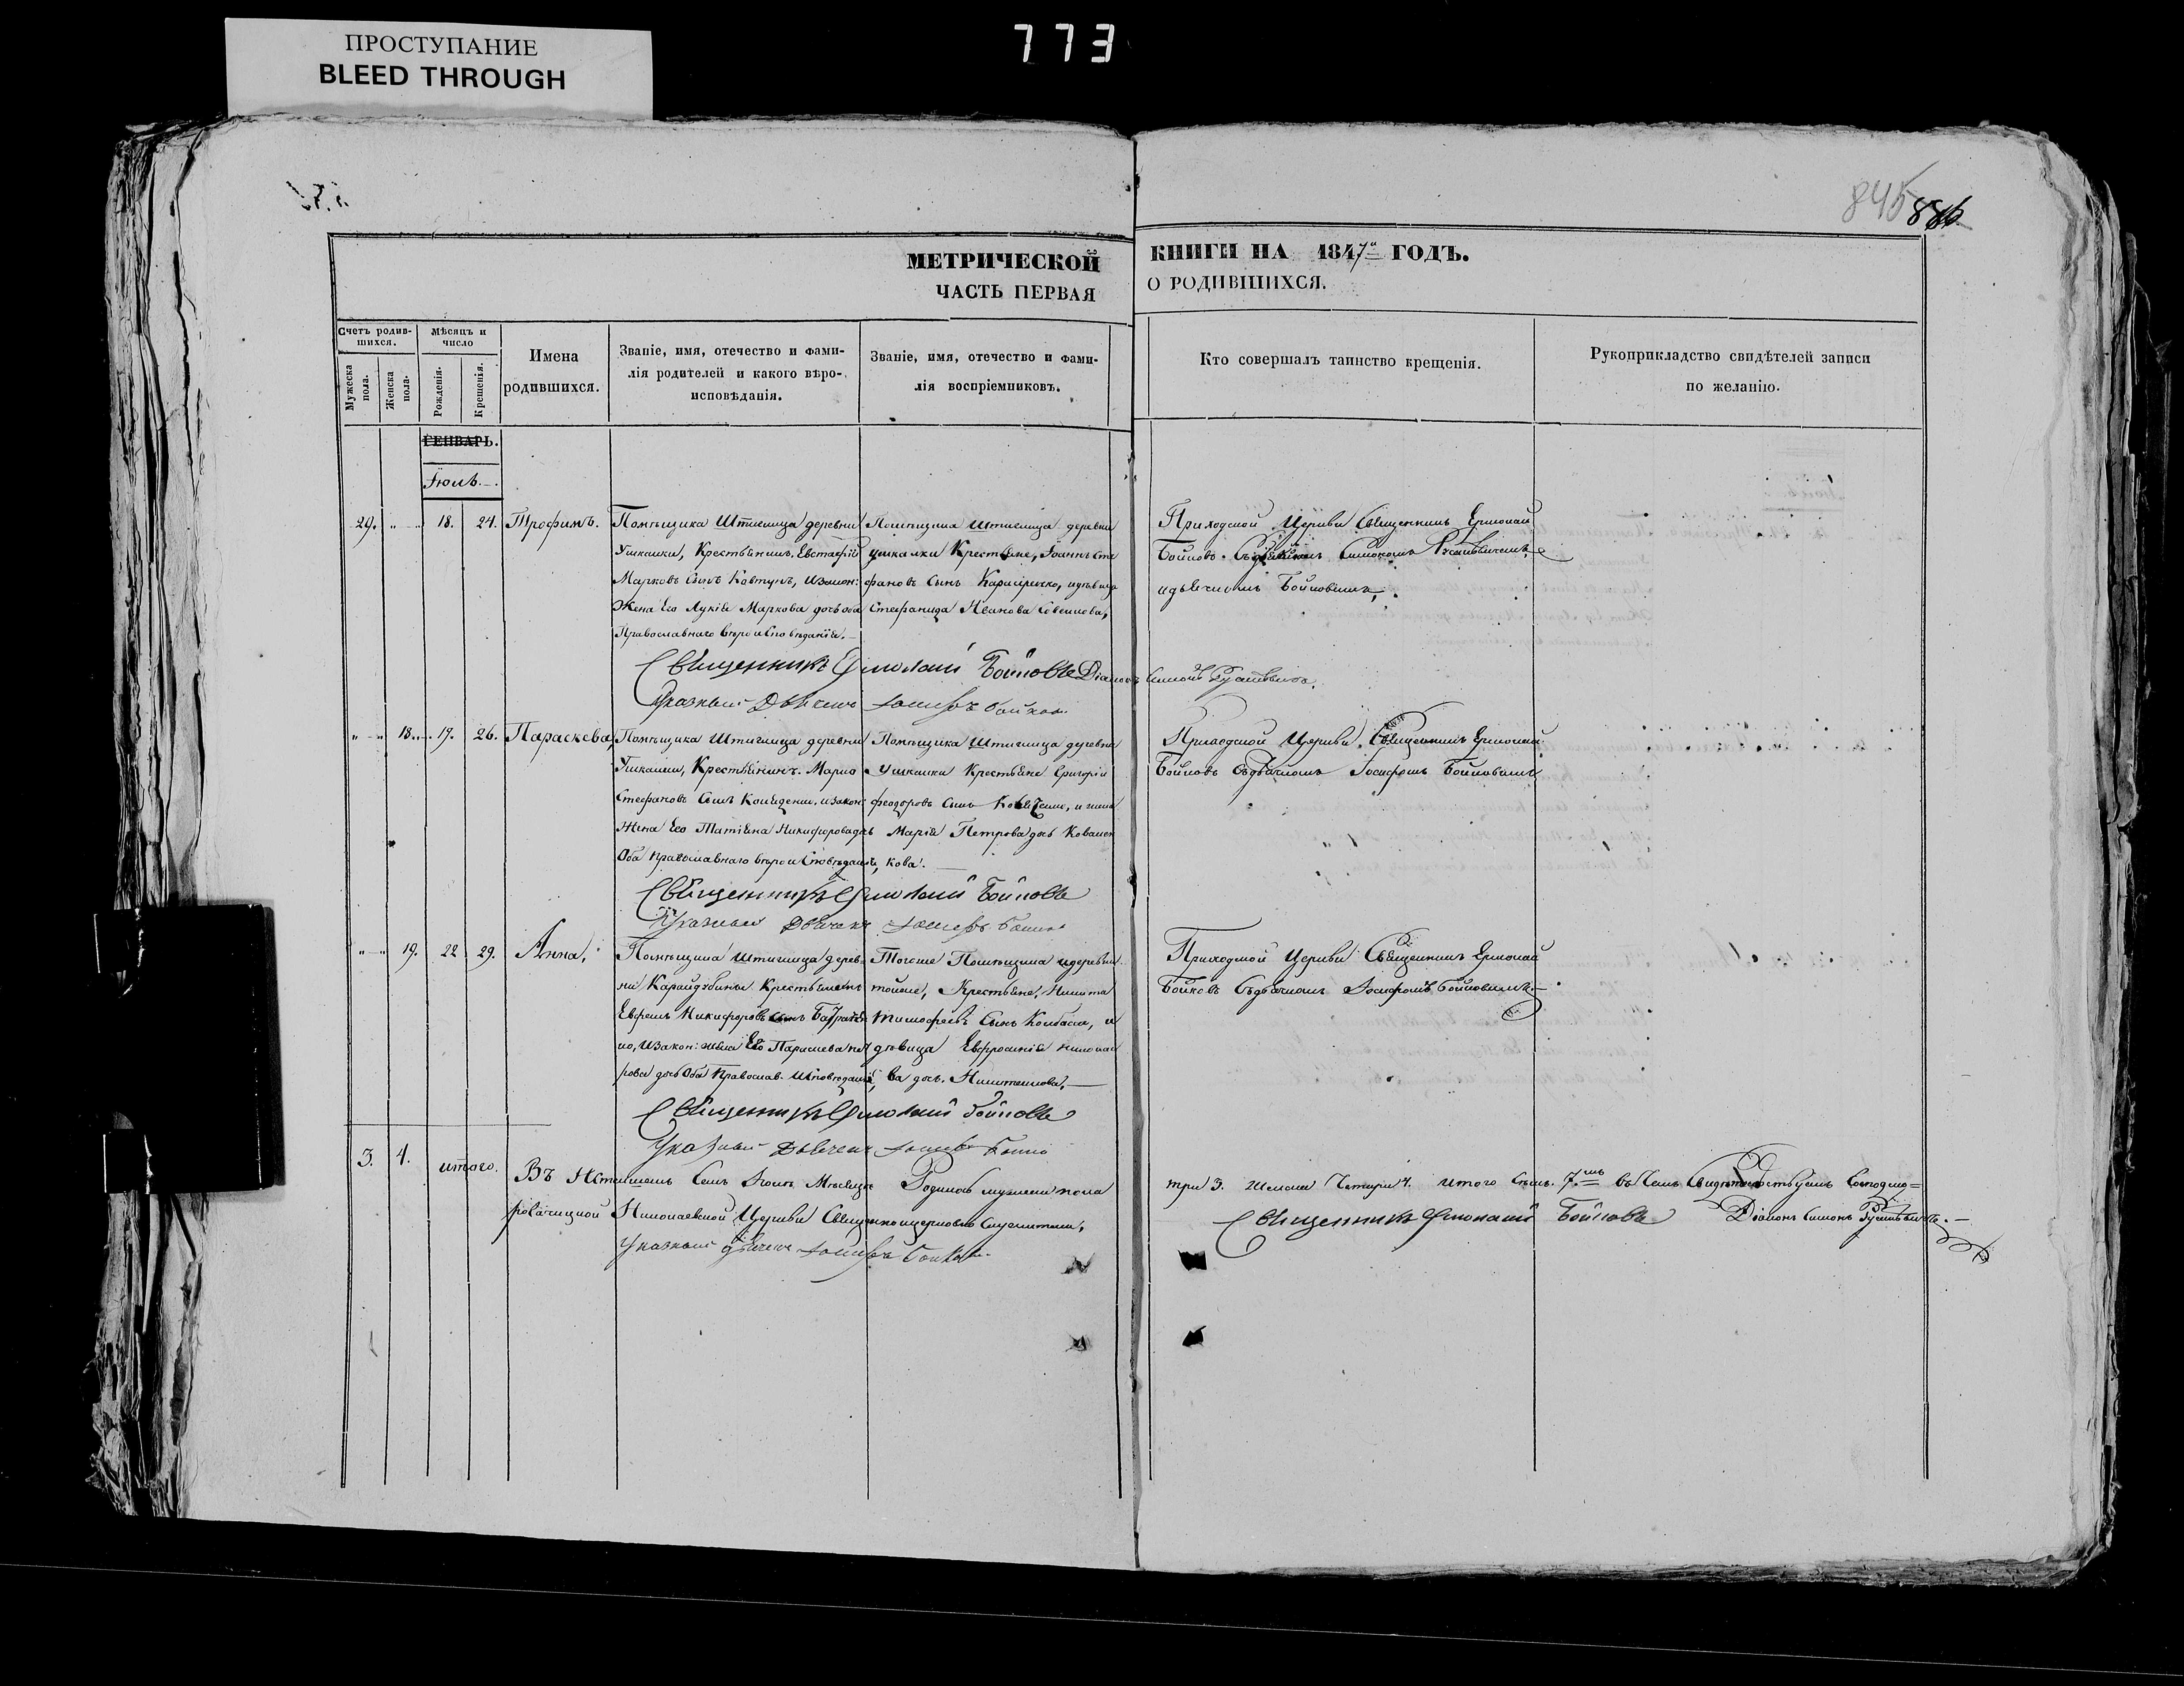 ПРОСТУПАНИЕ
BLEED THROUGH
773
845
МЕТРИЧЕСКОЙ КНИГИ НА 1847й ГОДЪ.
ЧАСТЬ ПЕРВАЯ О РОДИВШИХСЯ.
Счетъ родив-
шихся.
Мужеска пола.
Женска пола.
Мѣсяцъ и
число
Рожденія.
Крещенія.
Имена
родившихся.
Званіе, имя, отечество и фами-
лія родителей и какого вѣро-
исповѣданія.
Званіе, имя, отечество и фами-
лія воспріемниковъ.
Кто совершалъ таинство крещенія.
Рукоприкладство свидѣтелей записи
по желанію.
ГЕНВАРЬ.
Іюль.
29. " " 18. 24. Трофимъ.
Помѣщика Штиглица деревни
Ушкалки, Крестьянинъ Евстафій
Марковъ сынъ Ковтунъ, изакон:
Жена его Лукія Маркова дочь оба
Православнаго вѣроисповѣданія.
Помѣщика Штиглица деревни
Ушкалки Крестьяне, Іоаннъ Сте
фановъ сынъ идѣвица
Стефанида Иванова
Приходской Церкви Священникъ Ермолай
Бойковъ Съдіакономъ Симономъ
идьячкомъ Бойковымъ,
Священникъ Ермолай Бойковъ Діаконъ Симонъ
Указный Дьячекъ Іосифъ Бойко
" " 18. 19. 26. Параскева,
Помѣщика Штиглица деревни
Ушкалки, Крестьянинъ Марко
Стефановъ сынъ изакон:
Жена его Татіана Никифорова дочь
Оба православнаго вѣроисповѣданія,
Помѣщика Штиглица деревни
Ушкалки Крестьяне Григорій
Феодоровъ сынъ и
Марія Петрова дочь Ковален
кова.
Приходской Церкви Священникъ Ермолай
Бойковъ Съдьячкомъ Іосифомъ Бойковымъ
Священникъ Ермолай Бойковъ
Указный Дьячекъ Іосифъ Бойко
" " 19. 22 29. Анна,
Помѣщика Штиглица дерев
ни Карайдубины Крестьянинъ
Ефремъ Никифоровъ сынъ
изакон: жена его Параскева
дочь Оба Православ. Исповѣданія,
Тогоже Помѣщика идеревни
тойже, Крестьяне, Никита
Тимофеевъ сынъ Колбаса, и
дѣвица Евфросинія Никола
ва дочь
Приходской Церкви Священникъ Ермолай
Бойковъ Съдьячкомъ Іосифомъ Бойковымъ
Священникъ Ермолай Бойковъ
Указный Дьячекъ Іосифъ Бойко
3. 4. итого.
Въ семъ Іюль Мѣсяцѣ Родилось мужеска пола три 3. Женска Четыри 4. итого семь. 7мь въ Чемъ Свидѣтельствуемъ
Николаевской Церкви Священноцерковно
Священникъ Ермолай Бойковъ Діаконъ Симонъ
Указный дьячекъ Іосифъ Бойко